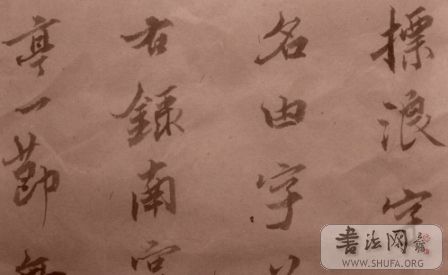 摽浪
名由字
右録南宮
亭一莭
書法网
WWW.SHUFA.ORG